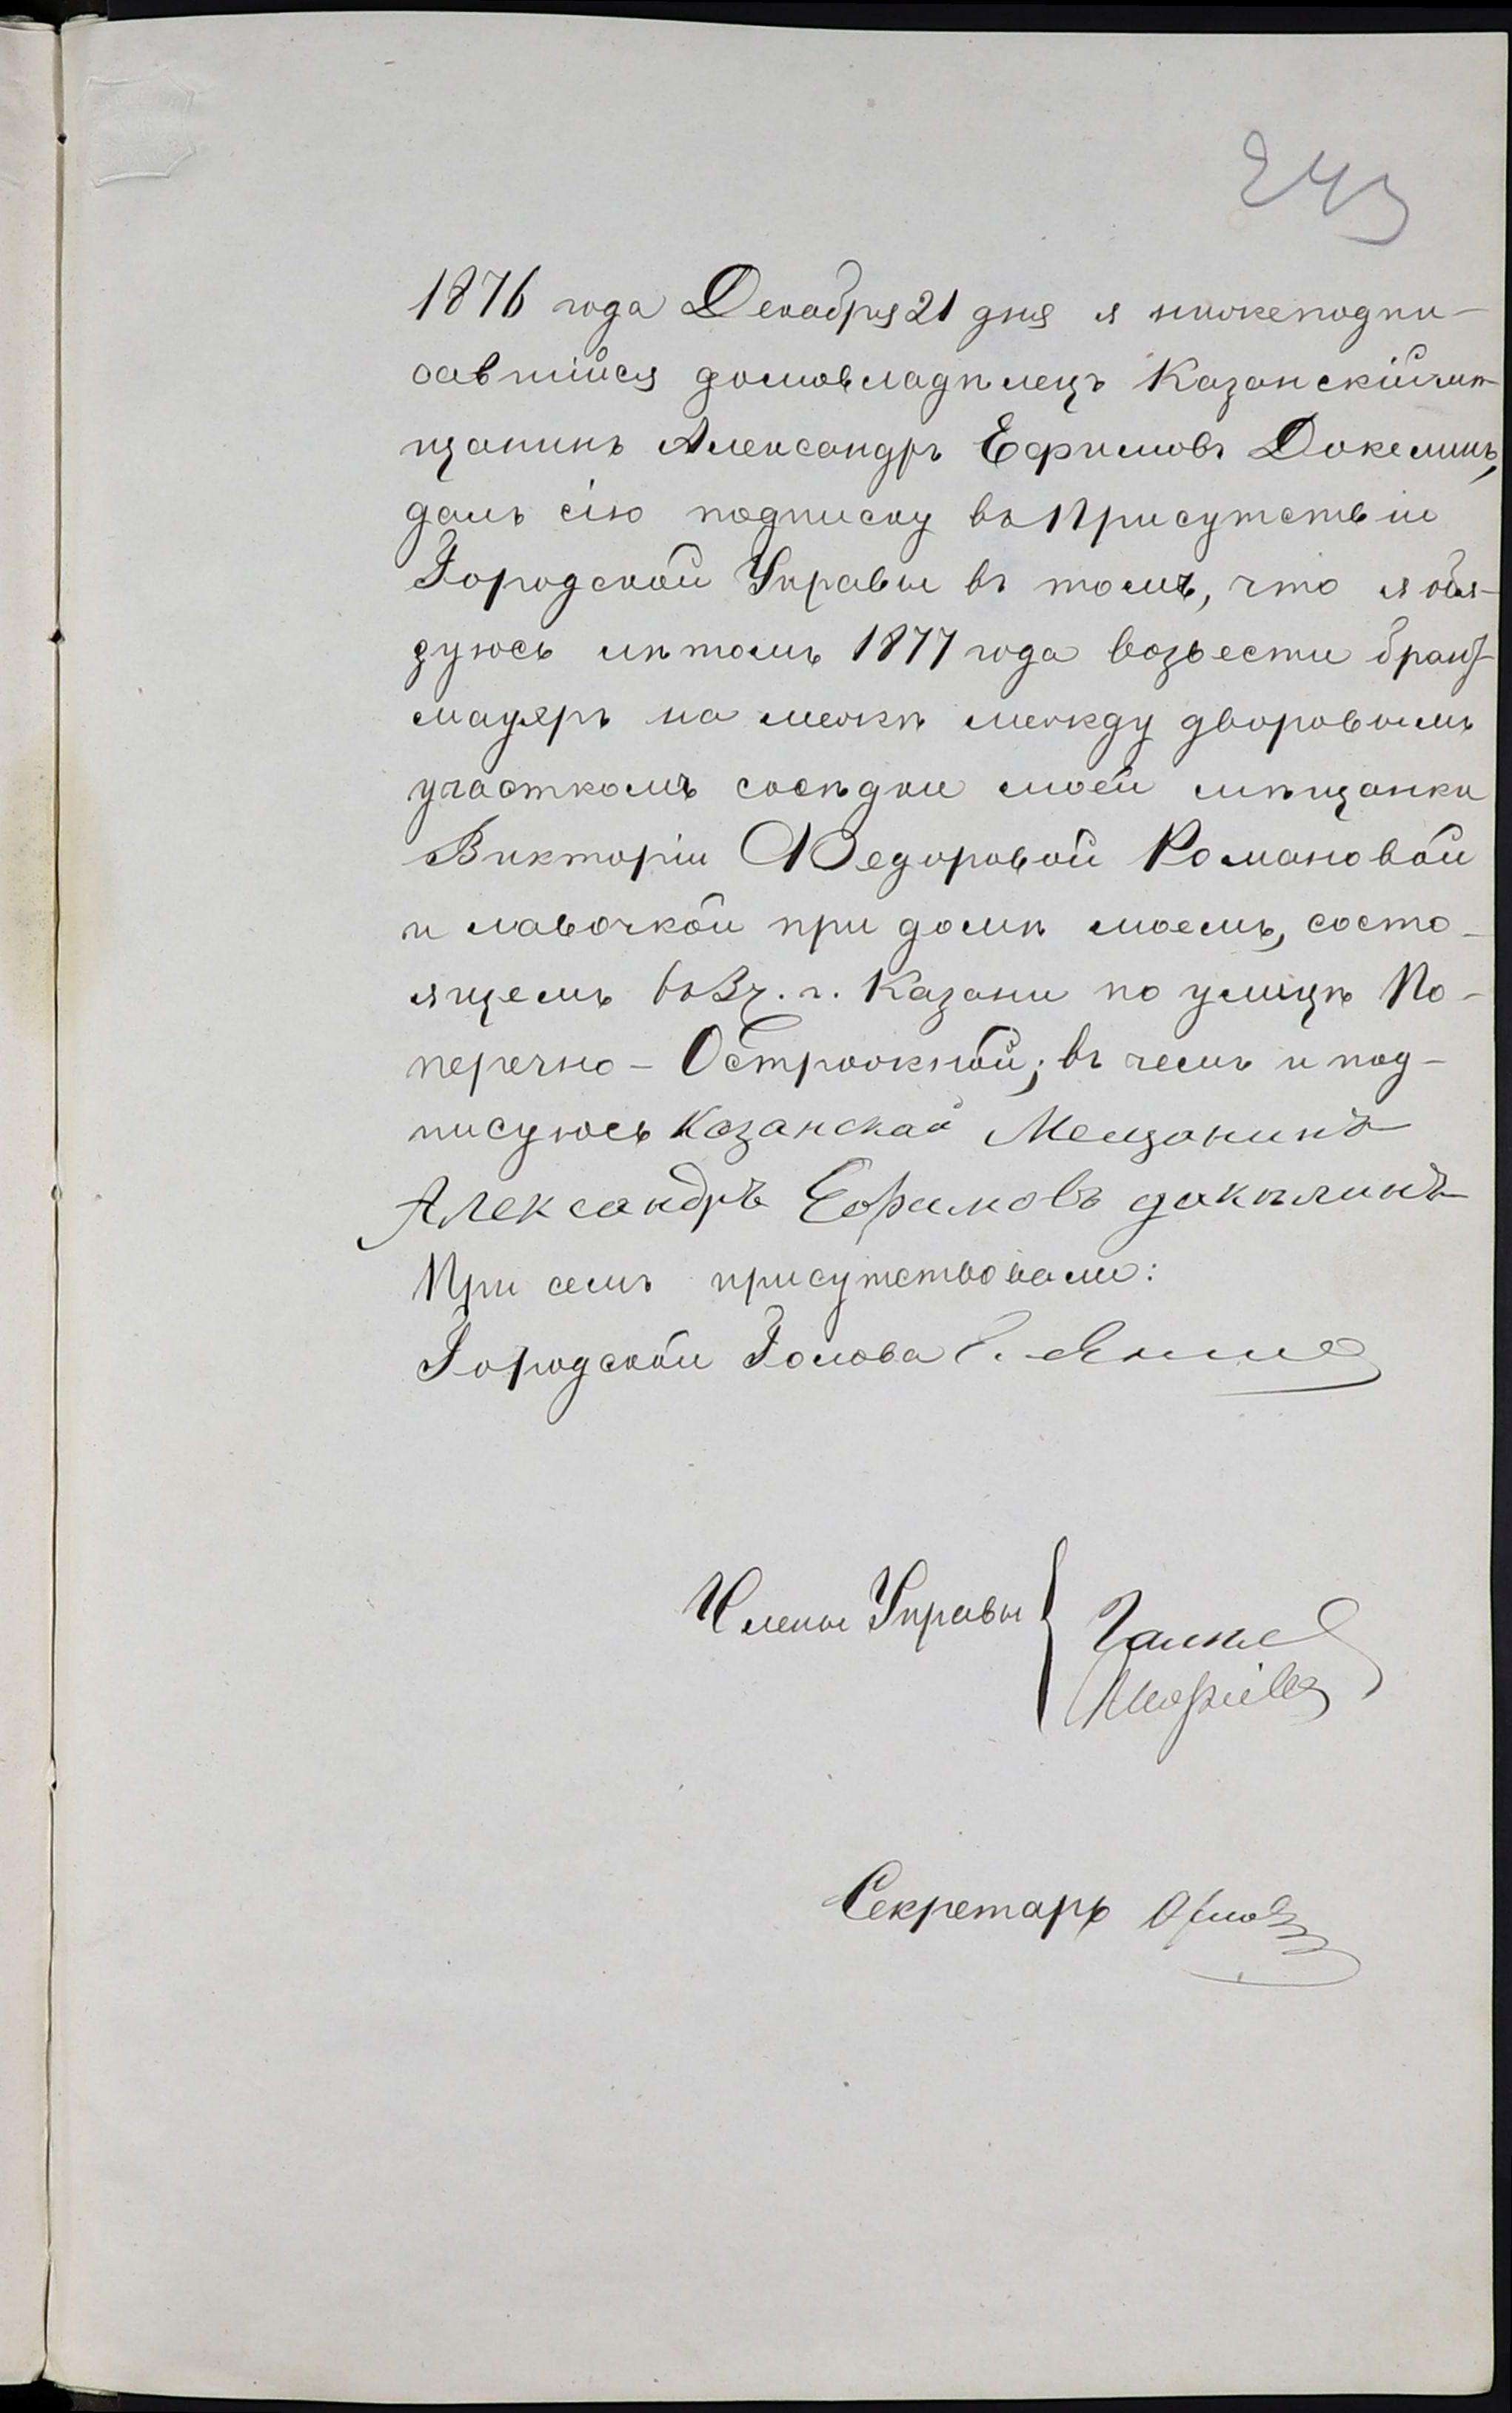 243
1876 года Декабря 21 дня я нижеподпи-
савшійся домовладѣлецъ Казанскій мѣ-
щанинъ Александръ Ефимовъ Докелинъ,
далъ сію подписку въ Присутствіи
Городской Управы въ томъ, что я обя-
зуюсь лѣтомъ 1877 года возвести бранд-
мауэръ на межѣ между дворовымъ
участкомъ сосѣдки моей мѣщанки
Викторіи Федоровой Романовой
и лавочкой при домѣ моемъ, состо-
ящемъ въ 3 ч. г. Казани по улицѣ По-
перечно-Острожной; въ чемъ и под-
писуюсь Казанскай Мещанинъ
Александръ Ефимовъ дакѣлинъ
При семъ присутствовали:
Городской Голова Е. Янишев
Члены Управы
Секретарь Орловъ